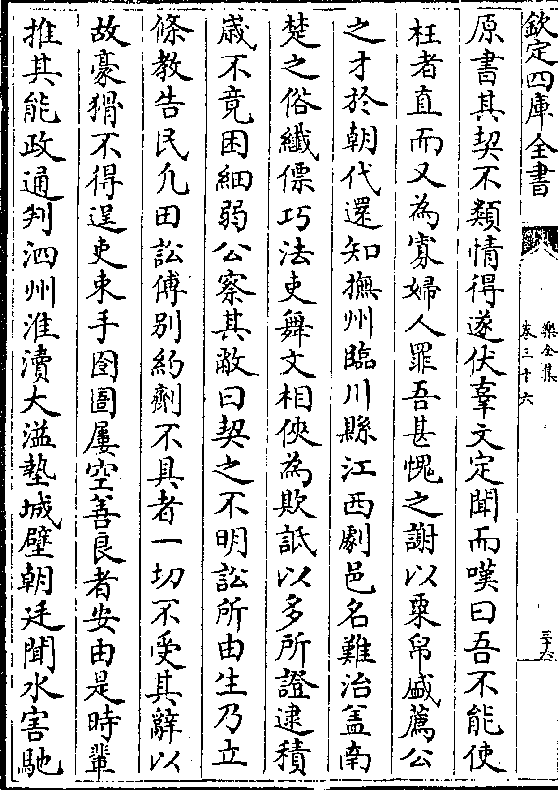 欽定四庫全書
樂全集
卷三十六
三十六
原書其契不類情得遂伏辜文定聞而嘆曰吾不能使
枉者直而又為寡婦人罪吾甚愧之謝以粟帛盛薦公
之才於朝代還知撫州臨川縣江西劇邑名難治盖南
楚之俗纖僄巧法吏舞文相俠為欺詆以多所證逮積
歳不竟困細弱公察其敝曰契之不明訟所由生乃立
條教告民凡田訟傅别約劑不具者一切不受其辭以
故豪猾不得逞吏束手囹圄屢空善良者安由是時輩
推其能政通判泗州淮瀆大溢墊城壁朝廷聞水害馳